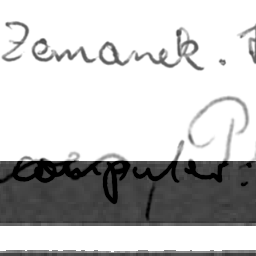 Zemanek.
computer: